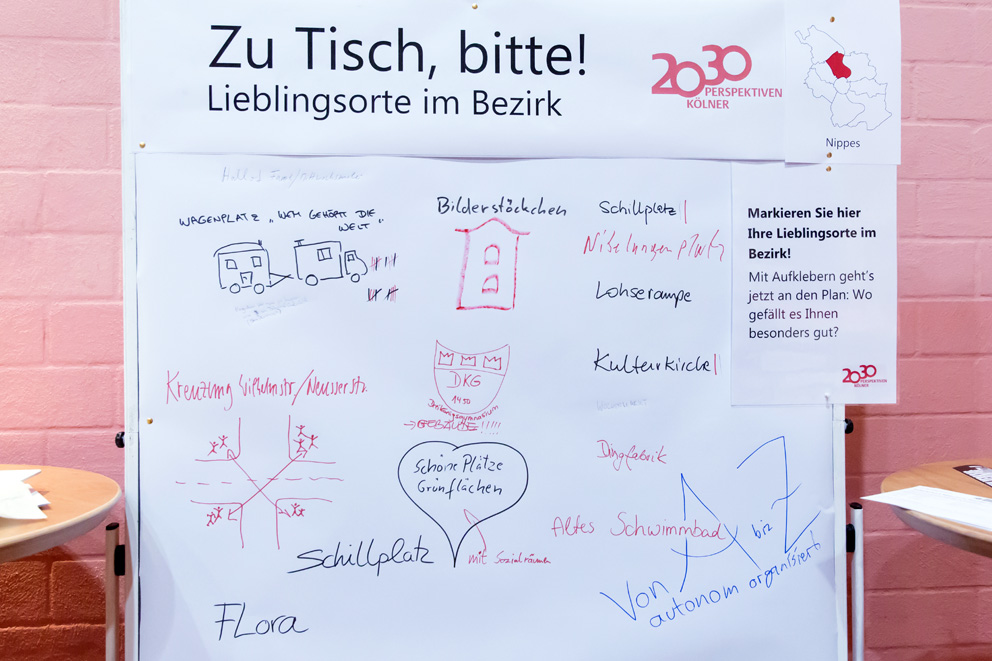 Zu Tisch, bitte!
Lieblingsorte im Bezirk
2030
PERSPEKTIVEN
KÖLNER
Nippes
Markieren Sie hier
Ihre Lieblingsorte im
Bezirk!
Mit Aufklebern geht's
jetzt an den Plan: Wo
gefällt es Ihnen
besonders gut?
2030
PERSPEKTIVEN
KÖLNER
WAGENPLATZ „WEM GEHÖRT DIE
WELT"
Bilderstöckchen
Schillplatz
Nibelungenplatz
Lohserampe
Kulturkirche
DKG
1450
Dreikönigsgymnasium
→ GEBÄUDE!!!!!
Kreuzung Wilhelmstr./Neusserstr.
Schöne Plätze
Grünflächen
mit Sozialräumen
Dingfabrik
Altes Schwimmbad
Schillplatz
Flora
Von A biz Z
autonom organisiert